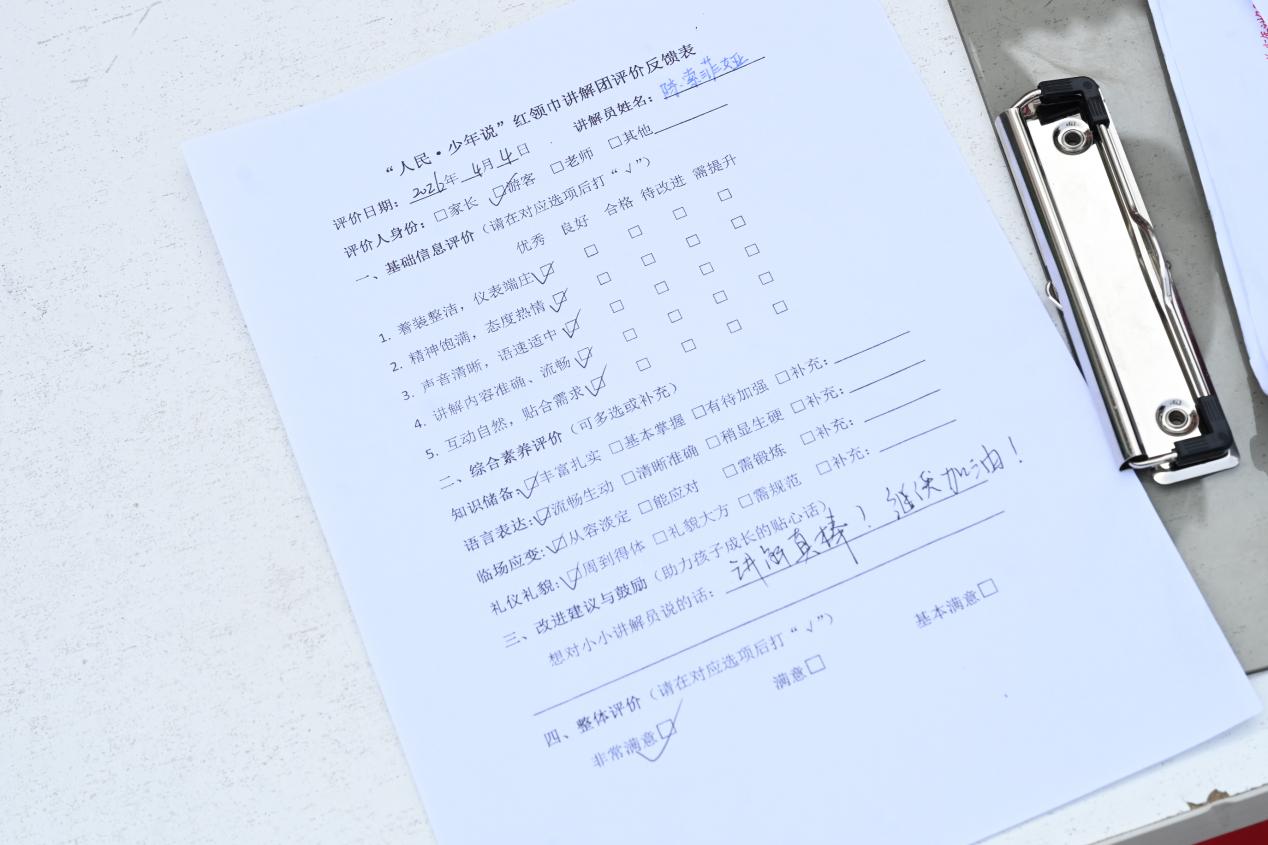 “人民·少年说”红领巾讲解团评价反馈表
评价日期：2026年 4月 4日 讲解员姓名：陈索菲娅
评价人身份：□家长 ☑游客 □老师 □其他
一、基础信息评价（请在对应选项后打“√”）
优秀 良好 合格 待改进 需提升
1. 着装整洁，仪表端庄☑ □ □ □ □
2. 精神饱满，态度热情☑ □ □ □ □
3. 声音清晰，语速适中☑ □ □ □ □
4. 讲解内容准确、流畅☑ □ □ □ □
5. 互动自然，贴合需求☑ □ □ □ □
二、综合素养评价（可多选或补充）
知识储备：☑丰富扎实 □基本掌握 □有待加强 □补充：
语言表达：☑流畅生动 □清晰准确 □稍显生硬 □补充：
临场应变：☑从容淡定 □能应对 □需锻炼 □补充：
礼仪礼貌：☑周到得体 □礼貌大方 □需规范 □补充：
三、改进建议与鼓励（助力孩子成长的贴心话）
想对小小讲解员说的话：讲解真棒！继续加油！
四、整体评价（请在对应选项后打“√”）
非常满意☑ 满意□ 基本满意□